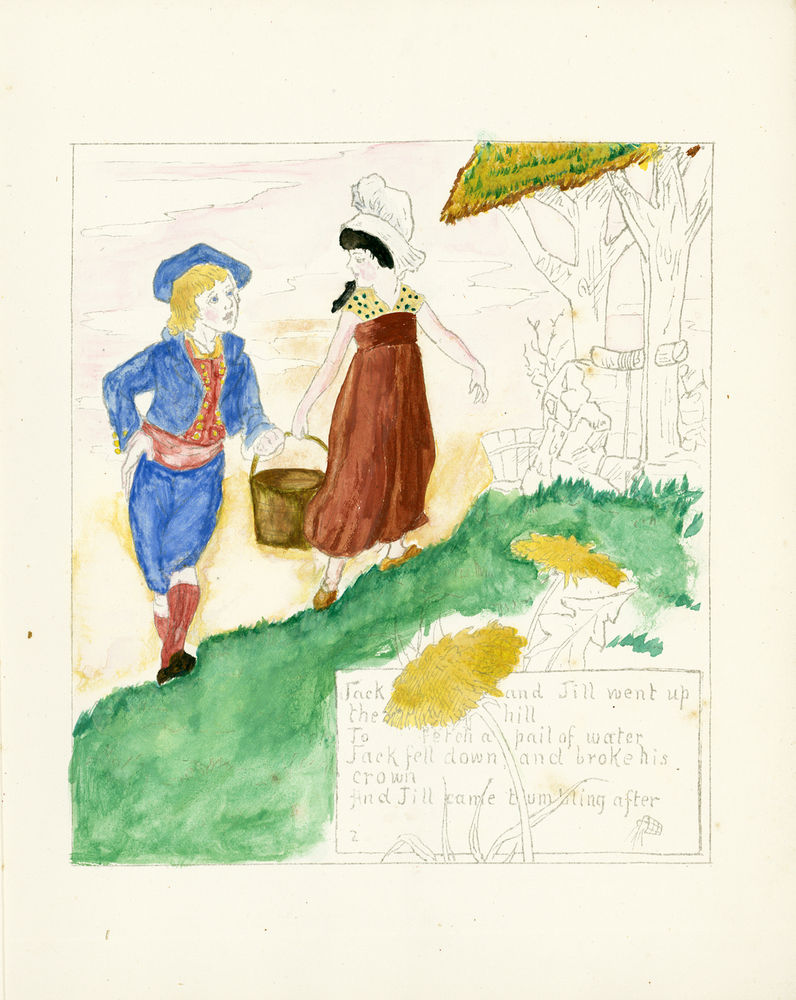 Jack and Jill went up
the hill
To fetch a pail of water
Jack fell down and broke his
crown
And Jill came tumbling after
2